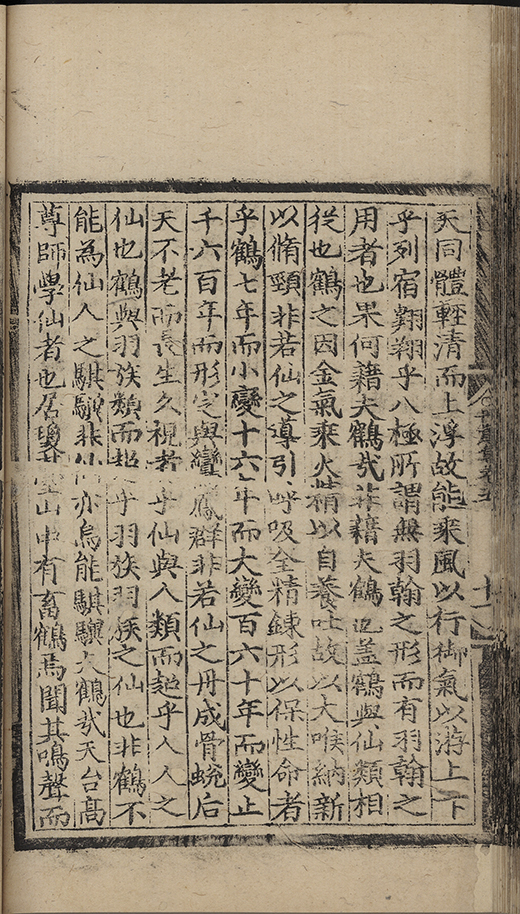 天同體輕清而上浮故能乘風以行御氣以游上下
乎列宿翺翔乎八極所謂無羽翰之形而有羽翰之
用者也果何藉夫鶴哉非藉夫鶴也盖鶴與仙類相
從也鶴之因金氣乘火精以自養吐故以大喉納新
以脩頸非若仙之導引呼吸全精鍊形以保性命者
乎鶴七年而小變十六年而大變百六十年而變止
千六百年而形定與鸞鳳群非若仙之丹成骨蛻后
天不老而長生久視者乎仙與人類而超乎人人之
仙也鶴與羽族類而超乎羽族羽族之仙也非鶴不
能為仙人之騏驥非仙亦烏能騏驥夫鶴哉天台髙
尊師學仙者也居瓊臺山中有畜鶴焉聞其鳴聲而